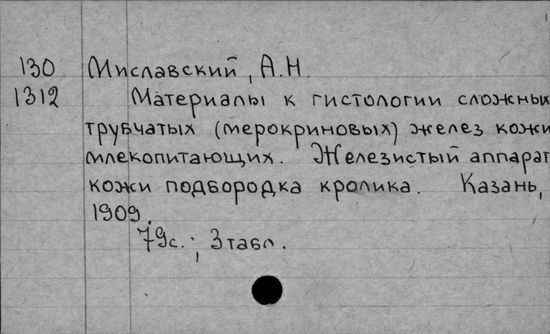 130 Миславский, А.Н.
1312 Материалы к гистологии сложных
трубчатых (мерокриновых) желез кожи
млекопитающих. Железистый аппарат
кожи подбородка кролика. Казань,
1909.
79с.; 3 табл.